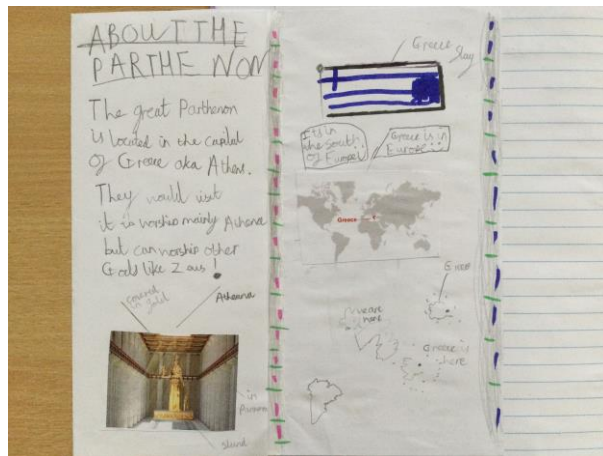 ABOUT THE
PARTHE NON
The great Parthenon
is located in the capital
of Greece aka Athens.
They would visit
it in worship mainly Athena
but can worship other
Gods like Zaus!
covered in gold
Atheana
in
Greece flag
It's in
the south
of Europe!
Greece is in
Europe!!
Greece
We are
here
Greece
Greece is
here